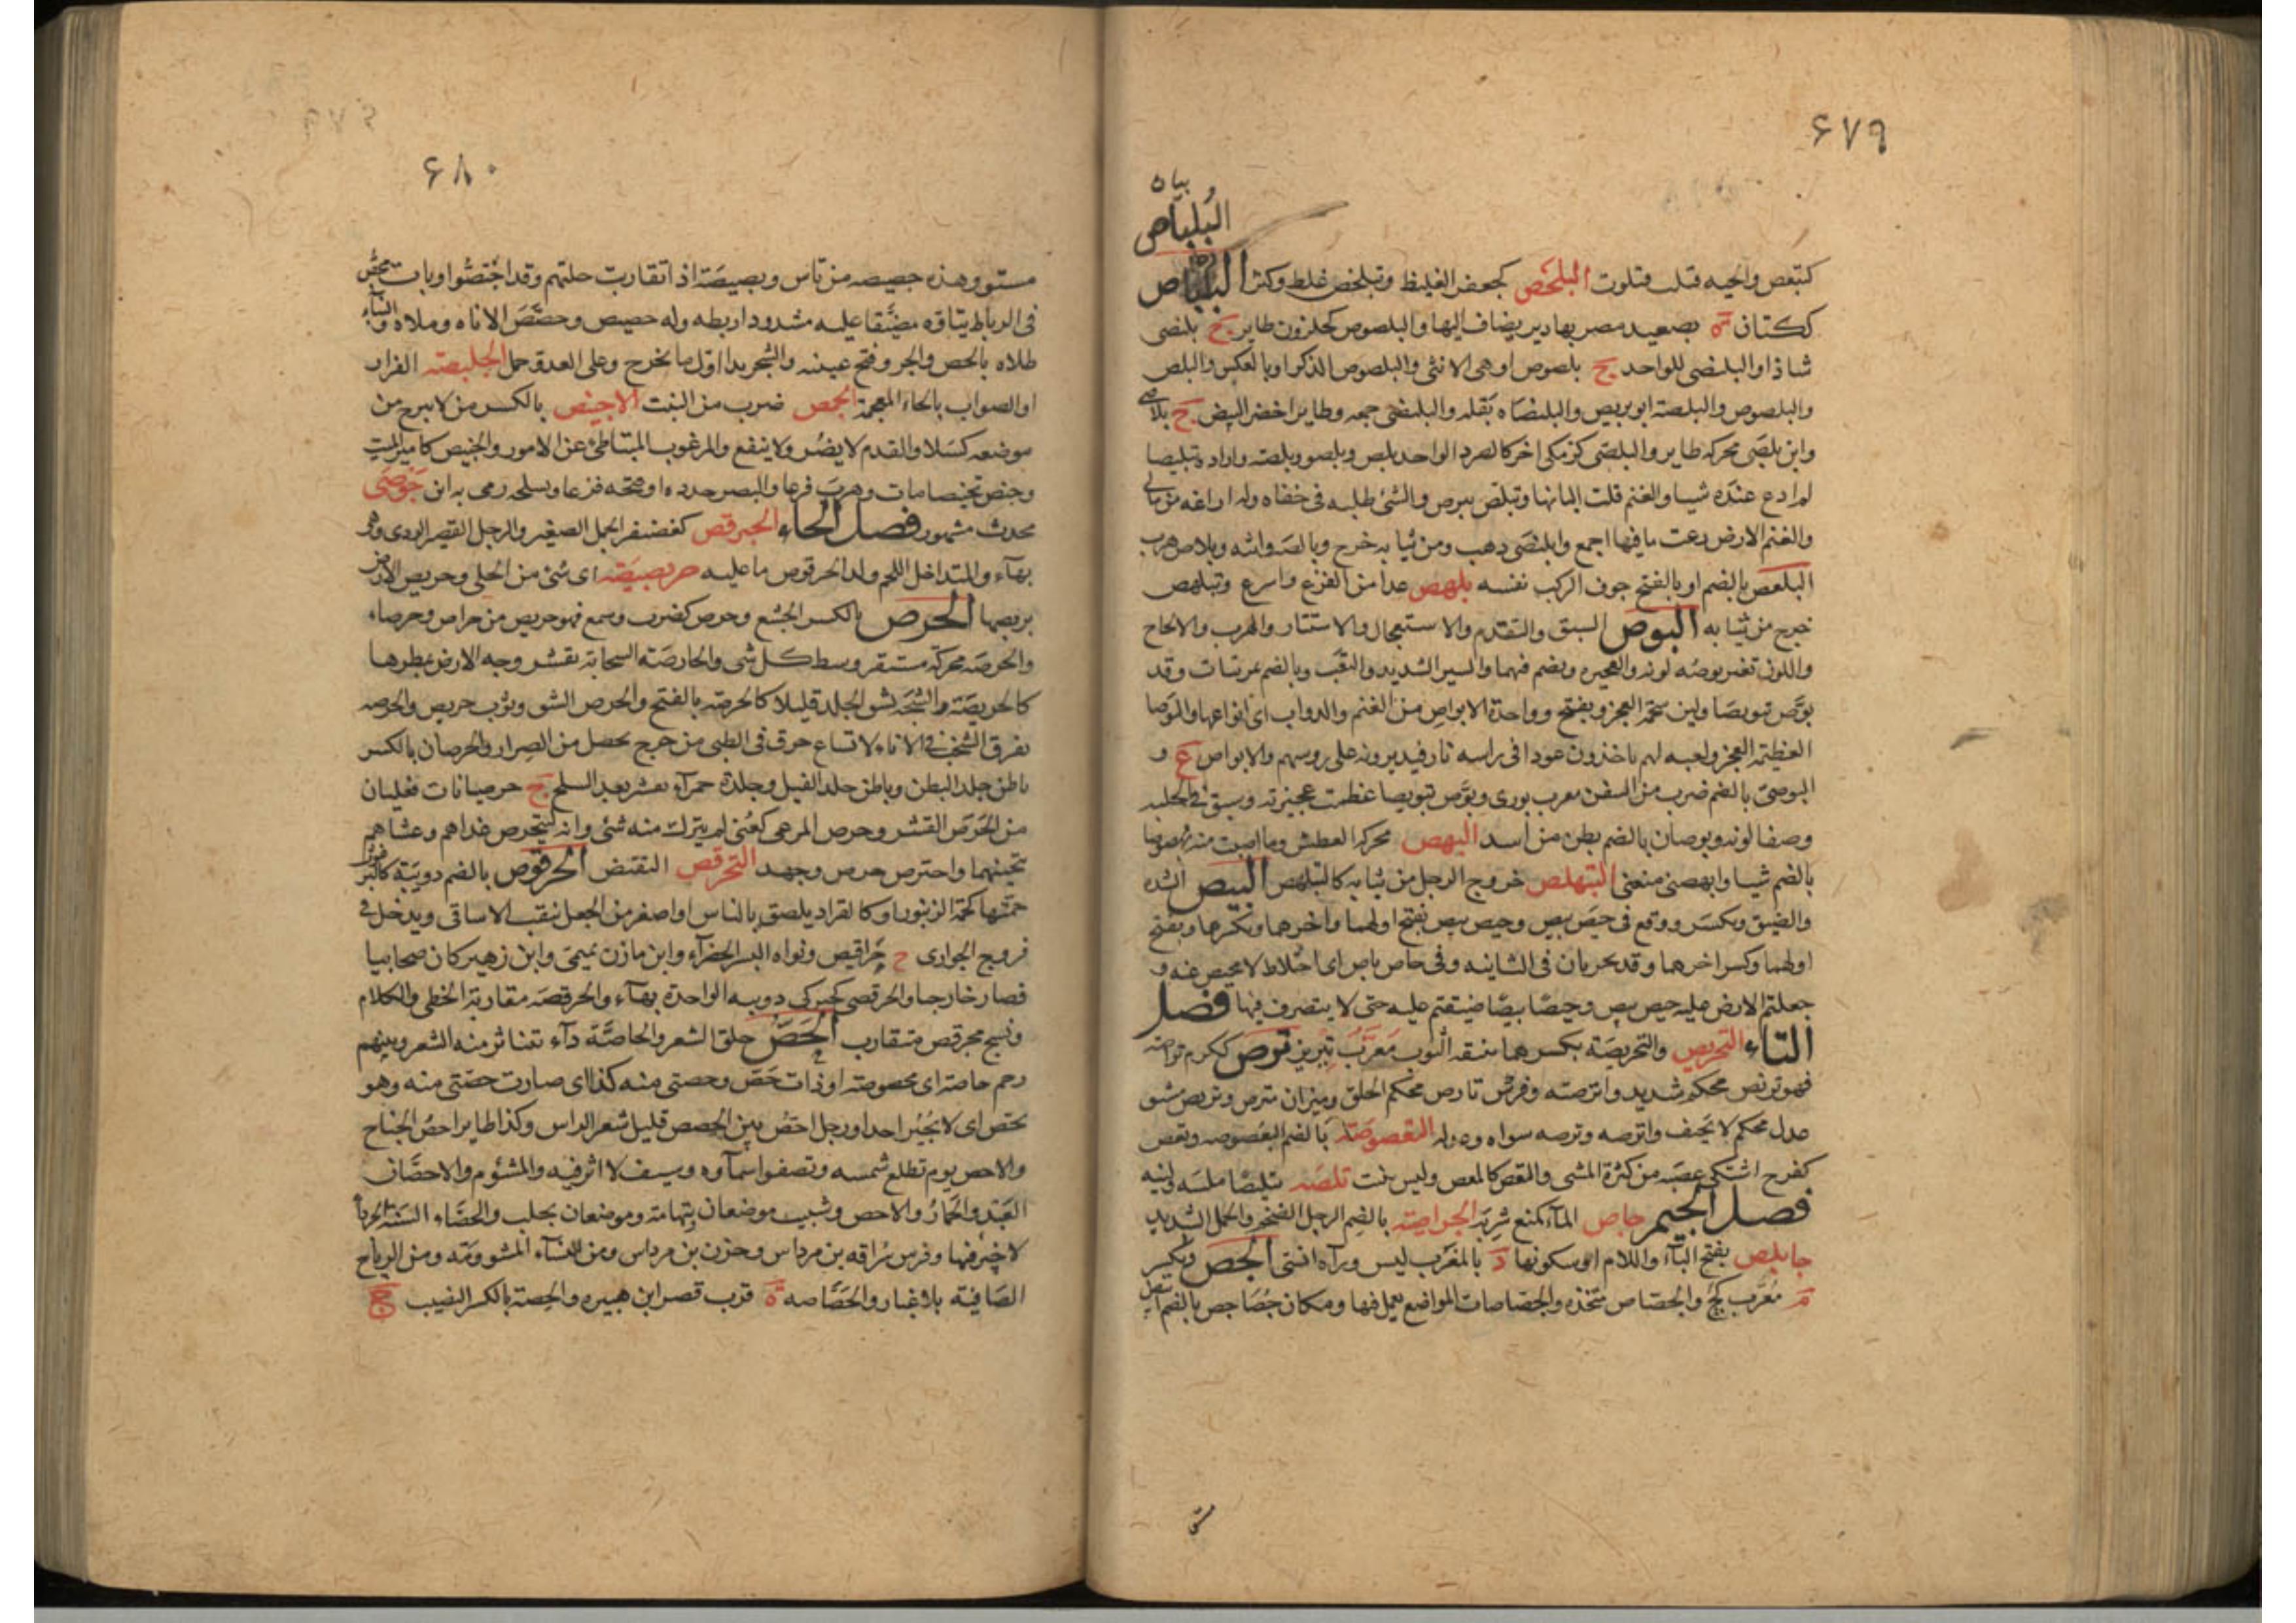 ۶۷۹
بيان
البُلبَاص
كتبعص والحيه قتلت فتلوت البلخص كجعفر الغليظ وتبلخص غلظ وكثر
ككتان ة بصعيد مصر بها دير يضاف اليها والبلصوص كحلزون طاير ج بلنصى
شاذ او البلنصى للواحد ج بلصوص او هى الانثى والبلصوص الذكر او بالعكس والبلص
والبلصوص والبلصة ابو بريص والبلنصاه بقله والبلنصى جمعه وطاير اخضر البيض ج
وابن بلصى محركه طاير والبلصى كزمكى اخر كالصرد الواحد بلص وبلصو وبلصه
لم ادع عنده شيا والغنم قلت البانها وتبلص تبرص والشئ طلبه فى خفاه وله اراغه من مالى
والغنم الارض رعت ما فيها اجمع وابلنصى ذهب ومن ثيابه خرج وبالص واثبه وبلاص هرب
البلعص بالضم او بالفتح جوف الركب نفسه بلهص عدا من الفزع واسرع وتبلهص
خرج من ثيابه البوص السبق والتقدم والاستعجال والاستتار والهرب والالحاح
واللون تغير بوصه لونه والعجيزه ويضم فيهما والسير الشديد والتعب وبالضم وقد
بوص تبويصا ولين شحمة العجز ويفتح وواحدة الابواص من الغنم والدواب اى انواعها والبوصا
العظيمة العجز ولعبه لهم ياخذون عودا فى راسه نار فيديرونه على روسهم والابواص ع و
البوصى بالضم ضرب من السفن معرب بورى وبوص تبويصا عظمت عجيزته وسبق فى الحلبه
وصفا لونه وبوصان بالضم بطن من اسد البهص محركه العطش وما اصبت منه بهصوصا
بالضم شيا وابهصنى منعنى التبهلص خروج الرجل من ثيابه كالتبلهص البيص الشده
والضيق ويكسر ووقع فى حيص بيص وحيص بيص بفتح اولهما واخرهما وبكسرهما وبفتح
اولهما وكسر اخرهما وقد يجريان فى الثانيه وفى حاص باص اى اختلاط لا محيص عنه و
جعلتم الارض عليه حيص بيص وحيصا بيصا ضيقتم عليه حتى لا يتصرف فيها فصل
التاء التخريص والتخريصة بكسرهما بنيقه الثوب معرب تيريز ترص ككرم تراصه
فهو تريص محكم شديد واترصته وفرس تارص محكم الخلق وميزان مترص وتريص مستو
عدل محكم لا يحيف واترصه وترصه سواه وعدله التعصوصة بالضم البعصوصه وتعص
كفرح اشتكى عصبه من كثرة المشى والتعص كالمعص وليس بثبت تلصه تتليصا ملسه ولينه
فصل الجيم جاص الماء كمنع شربه الجراصية بالضم الرجل الضخم والجمل الشديد
جابلص بفتح الباء واللام او سكونها د بالمغرب ليس وراه انسى الجص ويكسر
م معرب كچ والجصاص متخذه والجصاصات المواضع يعمل فيها ومكان جصاجص بالضم
مستو
۶۸۰
مستو وهذه جصيصه من ناس وبصيصة اذا تقاربت حلتهم وقد اجتصوا وبات يجص
فى الرباط يتاوه مضيقا عليه مشدودا ربطه وله جصيص وجصص الاناه وملاه والبناء
طلاه بالجص والجرو فتح عينيه والشجر بدا اول ما يخرج وعلى العدو حمل الجلبصة الفرار
او الصواب بالخاء المعجمة الجمص ضرب من النبت الاجنيص بالكسر من لا يبرح من
موضعه كسلا والفدم لا يضر ولا ينفع والمرغوب المتباطئ عن الامور والجنيص كامير الميت
وجنص تجنيصا مات وهرب فزعا والبصر حدده او فتحه فزعا وبسلحه رمى به ابن جوصى
محدث مشهور فصل الحاء الحبرقص كغضنفر الجمل الصغير والرجل القصير الردى وهو
بهاء والمتداخل اللحم ولد الحرقوص ما عليه حربصيصة اى شئ من الحلى وحربص الارض
بربصها الحرص بالكسر الجشع وحرص كضرب وسمع فهو حريص من حراص وحرصاء
والحرصه محركة مستقر وسط كل شى والحارصة السحابة تقشر وجه الارض بمطرها
كالحريصة والشجة تشق الجلد قليلا كالحرصة بالفتح والحرص الشق وثوب حريص والحرصه
تفرق الشخب فى الاناء لاتساع خرق فى الطبى من جرح يحصل من الصرار والحرصان بالكسر
باطن جلد البطن وباطن جلد الفيل وجلدة حمراء تقشر بعد السلخ ج حرصيانات فعليان
من الحرص القشر وحرص المرعى كعنى لم يترك منه شئ وانه ليتحرص غداهم وعشاهم
يتحينهما واحترص حرص وجهد التحرقص التقبض الحرقوص بالضم دويبة كالبرغوث
حمتها كحمة الزنبور او كالقراد يلصق بالناس او اصغر من الجعل ينقب الاساقى ويدخل فى
فروج الجوارى ج حراقيص ونواه البسر الخضراء وابن مازن تميمى وابن زهير كان صحابيا
فصار خارجيا والحرقصى كحبركى دويبه الواحدة بهاء والحرقصه مقاربة الخطى والكلام
ونسج محرقص متقارب الحص حلق الشعر والحاصة داء تتناثر منه الشعر وبينهم
رحم حاصة اى محصوصة او ذات حص وحصتى منه كذا اى صارت حصتى منه وهو
يحص اى لا يجير احدا ورجل احص بين الحصص قليل شعر الراس وكذا طاير احص الجناح
والاحص يوم تطلع شمسه وتصفو اسماوه وسيف لا اثر فيه والمشئوم والاحصان
العبد والحمار والاحص وشبيث موضعان بتهامة وموضعان بحلب والحصاء السنة الجردا
لا خير فيها وفرس سراقه بن مرداس وحزن بن مرداس ومن النساء المشوومه ومن الرياح
الصافية بلا غبار والحصاصه ة قرب قصر ابن هبيره والحصة بالكسر النصيب ج